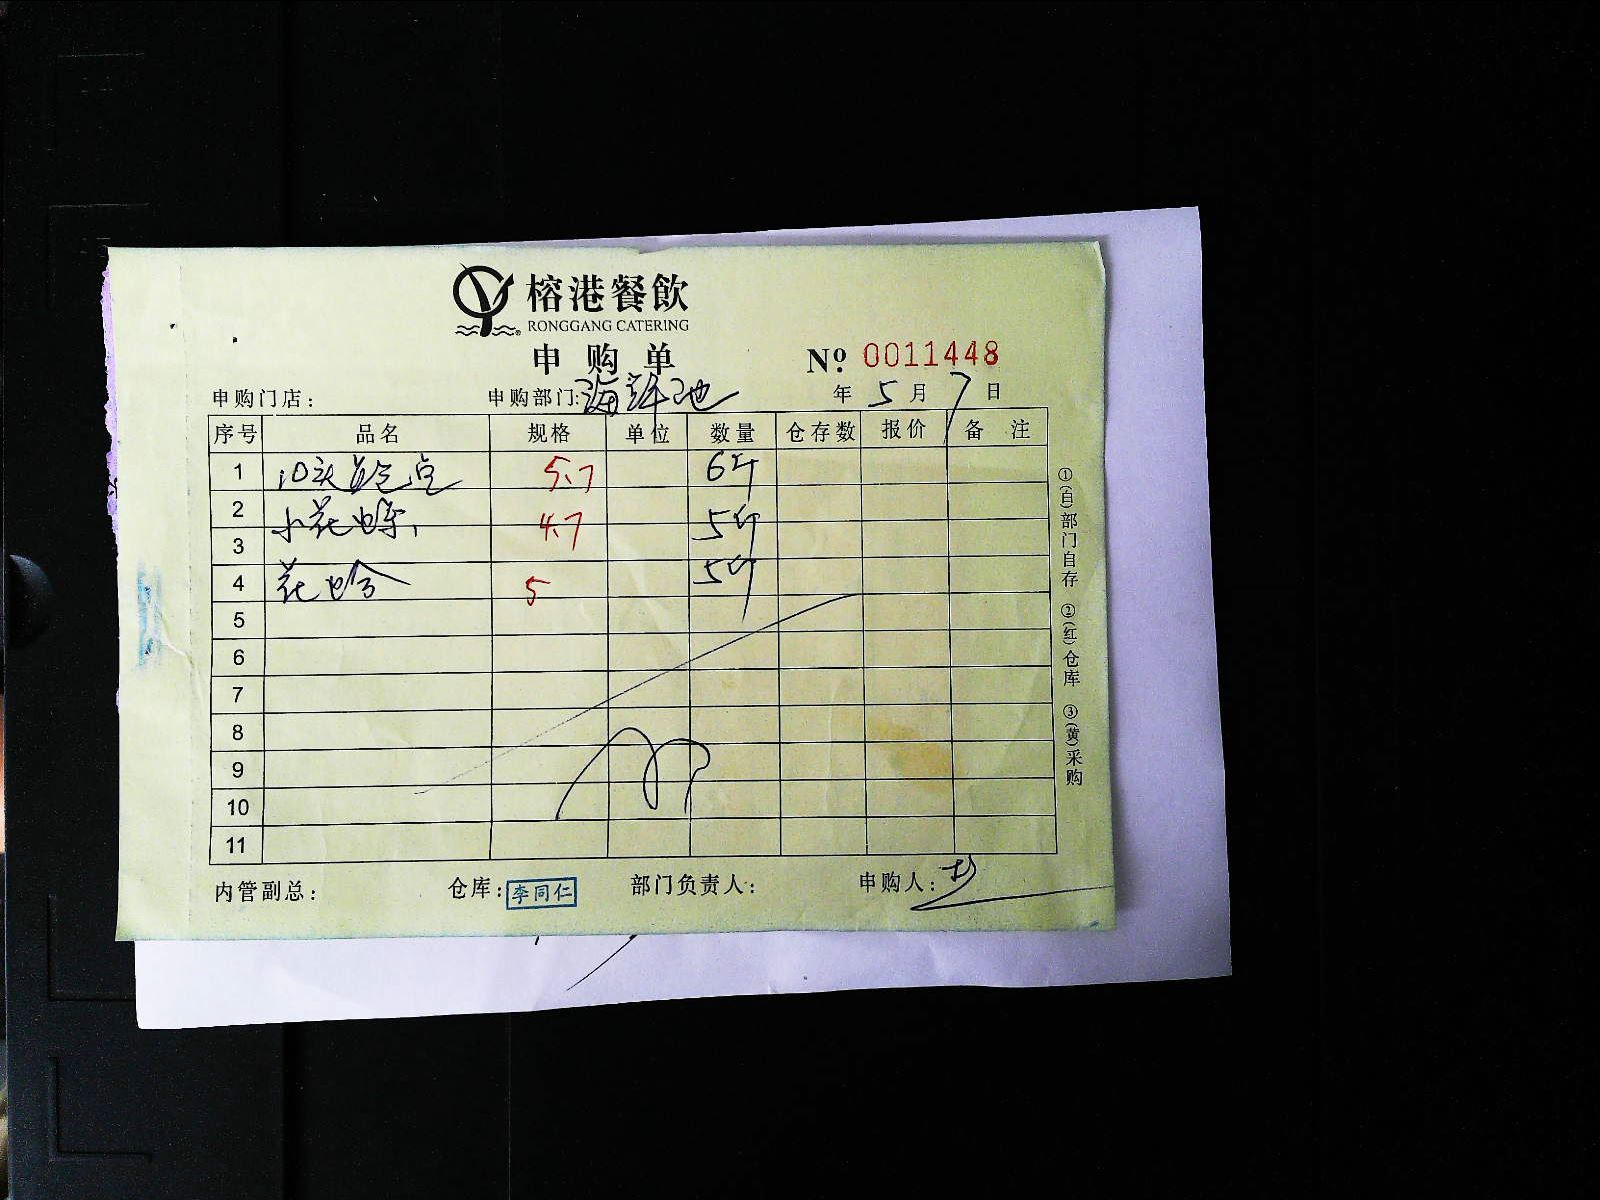 榕港餐飲
RONGGANG CATERING
申购单
No. 0011448
申购门店： 申购部门:海鲜池 年 5 月 7 日
序号 品名 规格 单位 数量 仓存数 报价 备 注
1 10头鲍 5.7 6斤
2 小花 4.7 5斤
3
4 花蛤 5 5斤
5
6
7
8
9
10
11
内管副总： 仓库：李同仁 部门负责人： 申购人：
①(白)部门自存 ②(红)仓库 ③(黄)采购